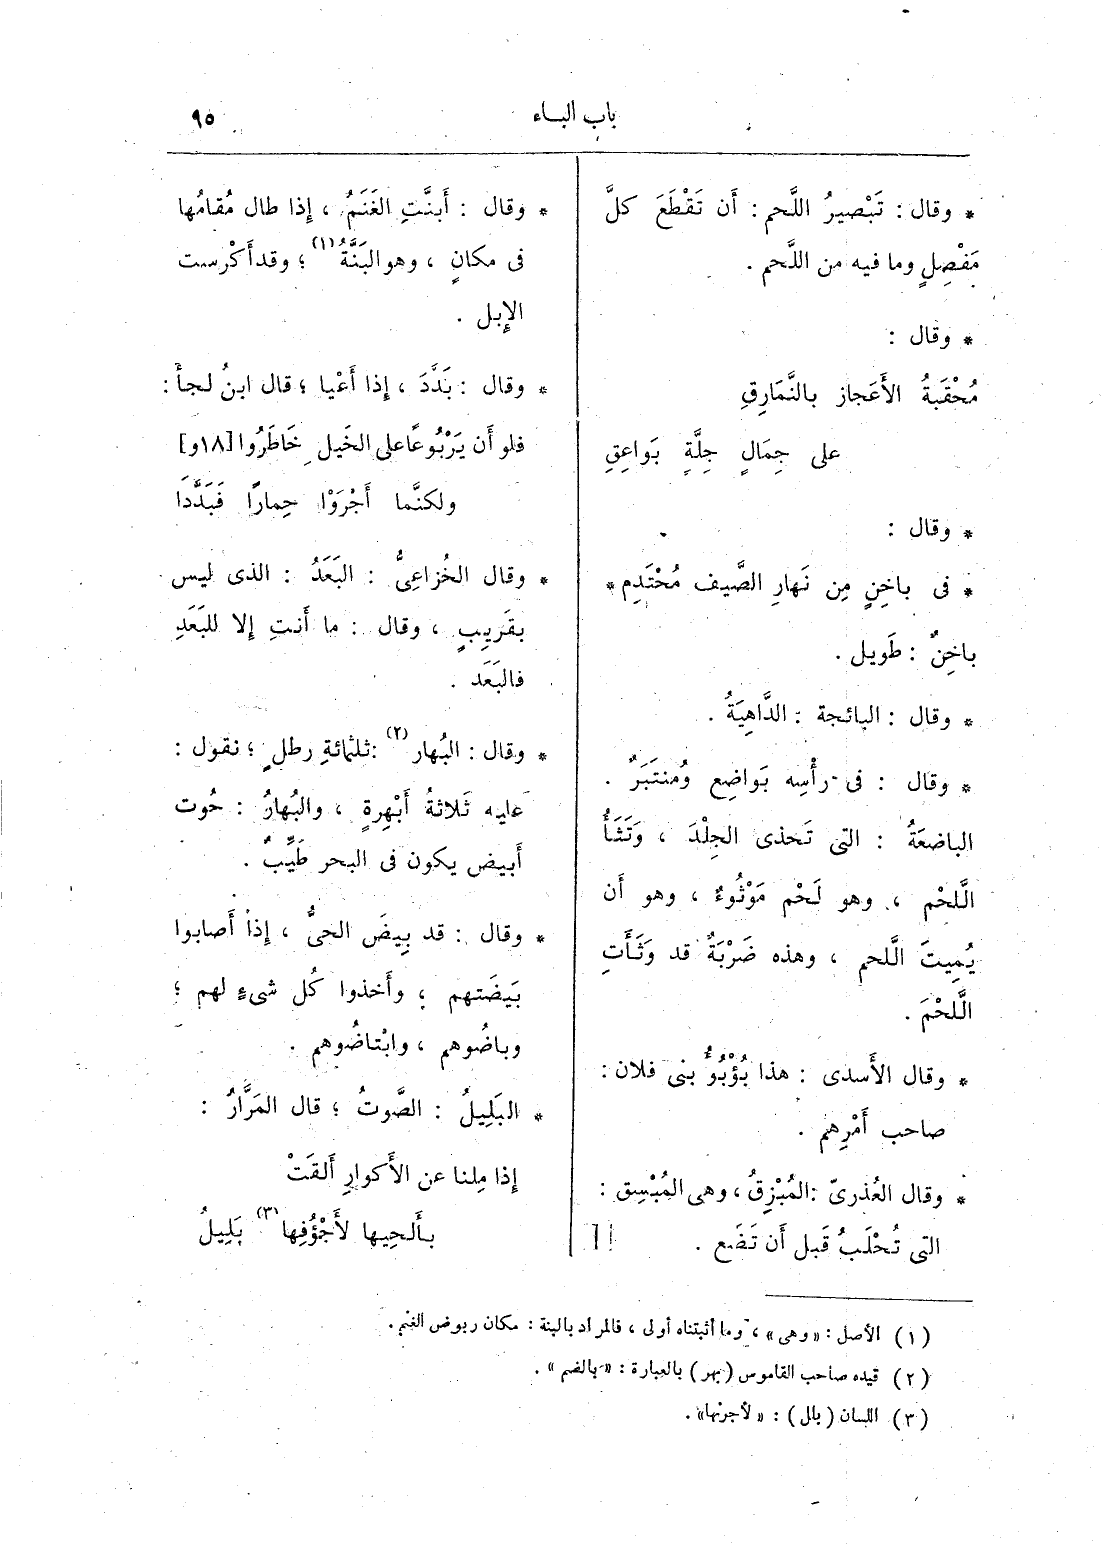 باب البـاء
٩٥
* وقال : تَبْصيرُ اللَّحم : أَن تَقْطَعَ كلَّ
مَفْصِلٍ وما فيه من اللَّحم .
* وقال :
مُحْقَبةُ الأَعجاز بالنَّمَارِقِ
على جِمَالٍ جِلَّةٍ بَواعِقِ
* وقال :
* فى باخِنٍ مِن نَهارِ الصَّيف مُحْتَدِم *
باخِنٌ : طَويل .
* وقال : البائجة : الدَّاهِيَةُ .
* وقال : فى رأْسِه بَواضِع ومُنتَبَرٌ .
الباضعَةُ : التى تَحذى الجِلْدَ ، وَتَثَأُ
الَّلحْم ، وهو لَحْم مَوْثُوءٌ ، وهو أَن
يُمِيتَ الَّلحم ، وهذه ضَرْبَةٌ قد وَثَأَتِ
الَّلحْمَ .
* وقال الأَسدى : هذا بُؤْبُؤُ بنى فلان :
صاحب أَمْرِهم .
* وقال العُذرىّ : المُبْزِقُ ، وهى المُبْسِق :
التى تُحْلَبُ قَبل أَن تَضَع .
* وقال : أَبنَّتِ الغَنَمُ ، إِذا طال مُقامُها
فى مكانٍ ، وهو البَنَّةُ (١) ؛ وقد أَكْرست
الإِبل .
* وقال : بَدَّدَ ، إِذا أَعْيا ؛ قال ابنُ لجأ :
فلو أَن يَرْبُوعًا على الخَيل خَاطَرُوا [١٨و]
ولكنَّما أَجْرَوْا حِمارًا فَبَدَّدَا
* وقال الخُزاعىُّ : البَعَدُ : الذى ليس
بقَريبٍ ، وقال : ما أَنتِ إِلا للبَعَدِ
فالبَعَد .
* وقال : البُهار (٢) : ثلثمائةِ رطلٍ ؛ نقول :
عليه ثَلاثةُ أَبْهِرةٍ ، والبُهارُ : حُوت
أَبيض يكون فى البحر طَيِّبٌ .
* وقال : قد بِيضَ الحىُّ ، إِذا أَصابوا
بَيضَتهم ، وأَخذوا كُل شىءٍ لهم ؛
وباضُوهم ، وابْتاضُوهم .
* البَلِيلُ : الصَّوتُ ؛ قال المَرَّارُ :
إِذا مِلنا عن الأَكوارِ أَلقَتْ
بأَلحِيها لأَجْؤُفِها (٣) بَلِيلُ
(١) الأصل : «وهى» ، وما أثبتناه أولى ، فالمراد بالبنة : مكان ربوض الغنم .
(٢) قيده صاحب القاموس (بهر) بالعبارة : «بالضم» .
(٣) اللسان (بلل) : «لأجرنها» .